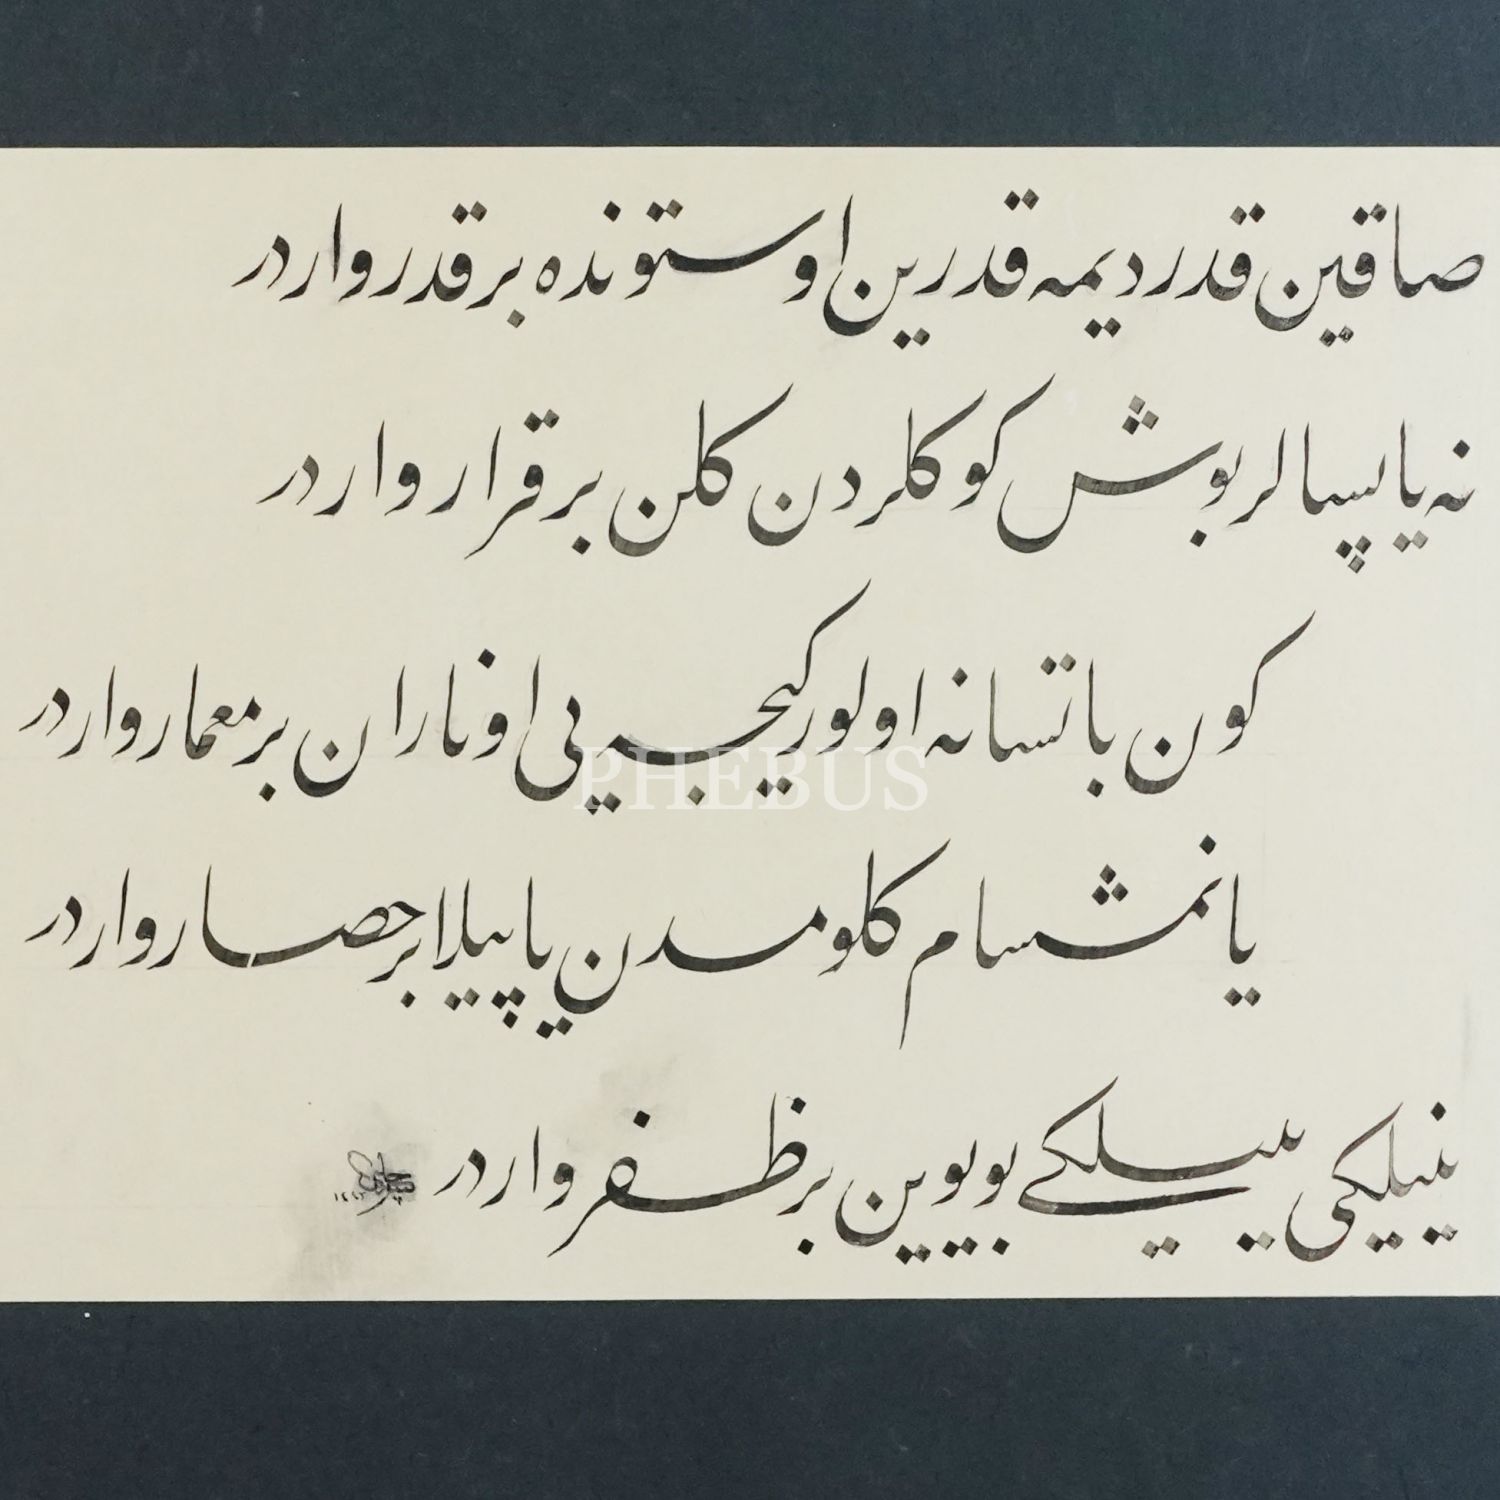 صاقین قدر دیمه قدرین اوستونده بر قدر واردر
نه یاپسالر بوش کوکلردن کلن بر قرار واردر
کون باتسا نه اولور کیجه یی اوناران بر معمار واردر
PHEBUS
یانمشسام کلومدن یاپیلا بر حصار واردر
ینیلکی ییلکی بویوین بر ظفر واردر